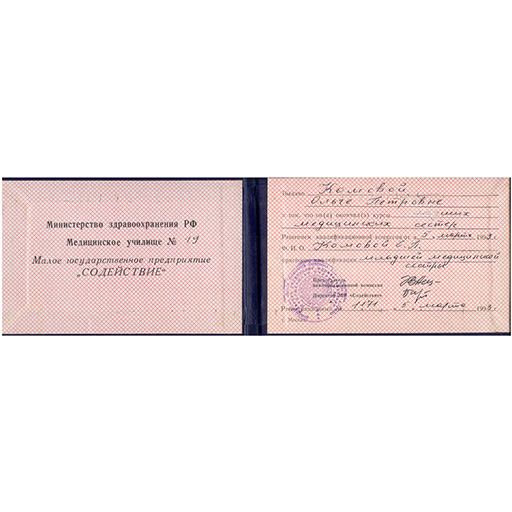 Министерство здравоохранения РФ
Медицинское училище № 19
Малое государственное предприятие
„СОДЕЙСТВИЕ"
Выдано Комовой
Ольге Петровне
в том, что он(а) окончил(а) курсы
медицинских сестер
Решением квалификационной комиссии от 5 марта 1993 г.
Ф. И. О. Комовой О.П.
присвоена квалификация младшей медицинской
сестры
Председатель
квалификационной комиссии
Директор МГП «Содействие»
1171 марта 1993 г.
г. Москва